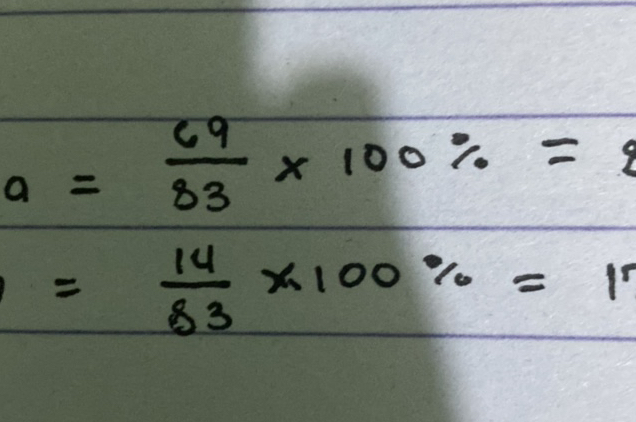 a = 69/83 × 100 % = 8
= 14/83 × 100 % = 17